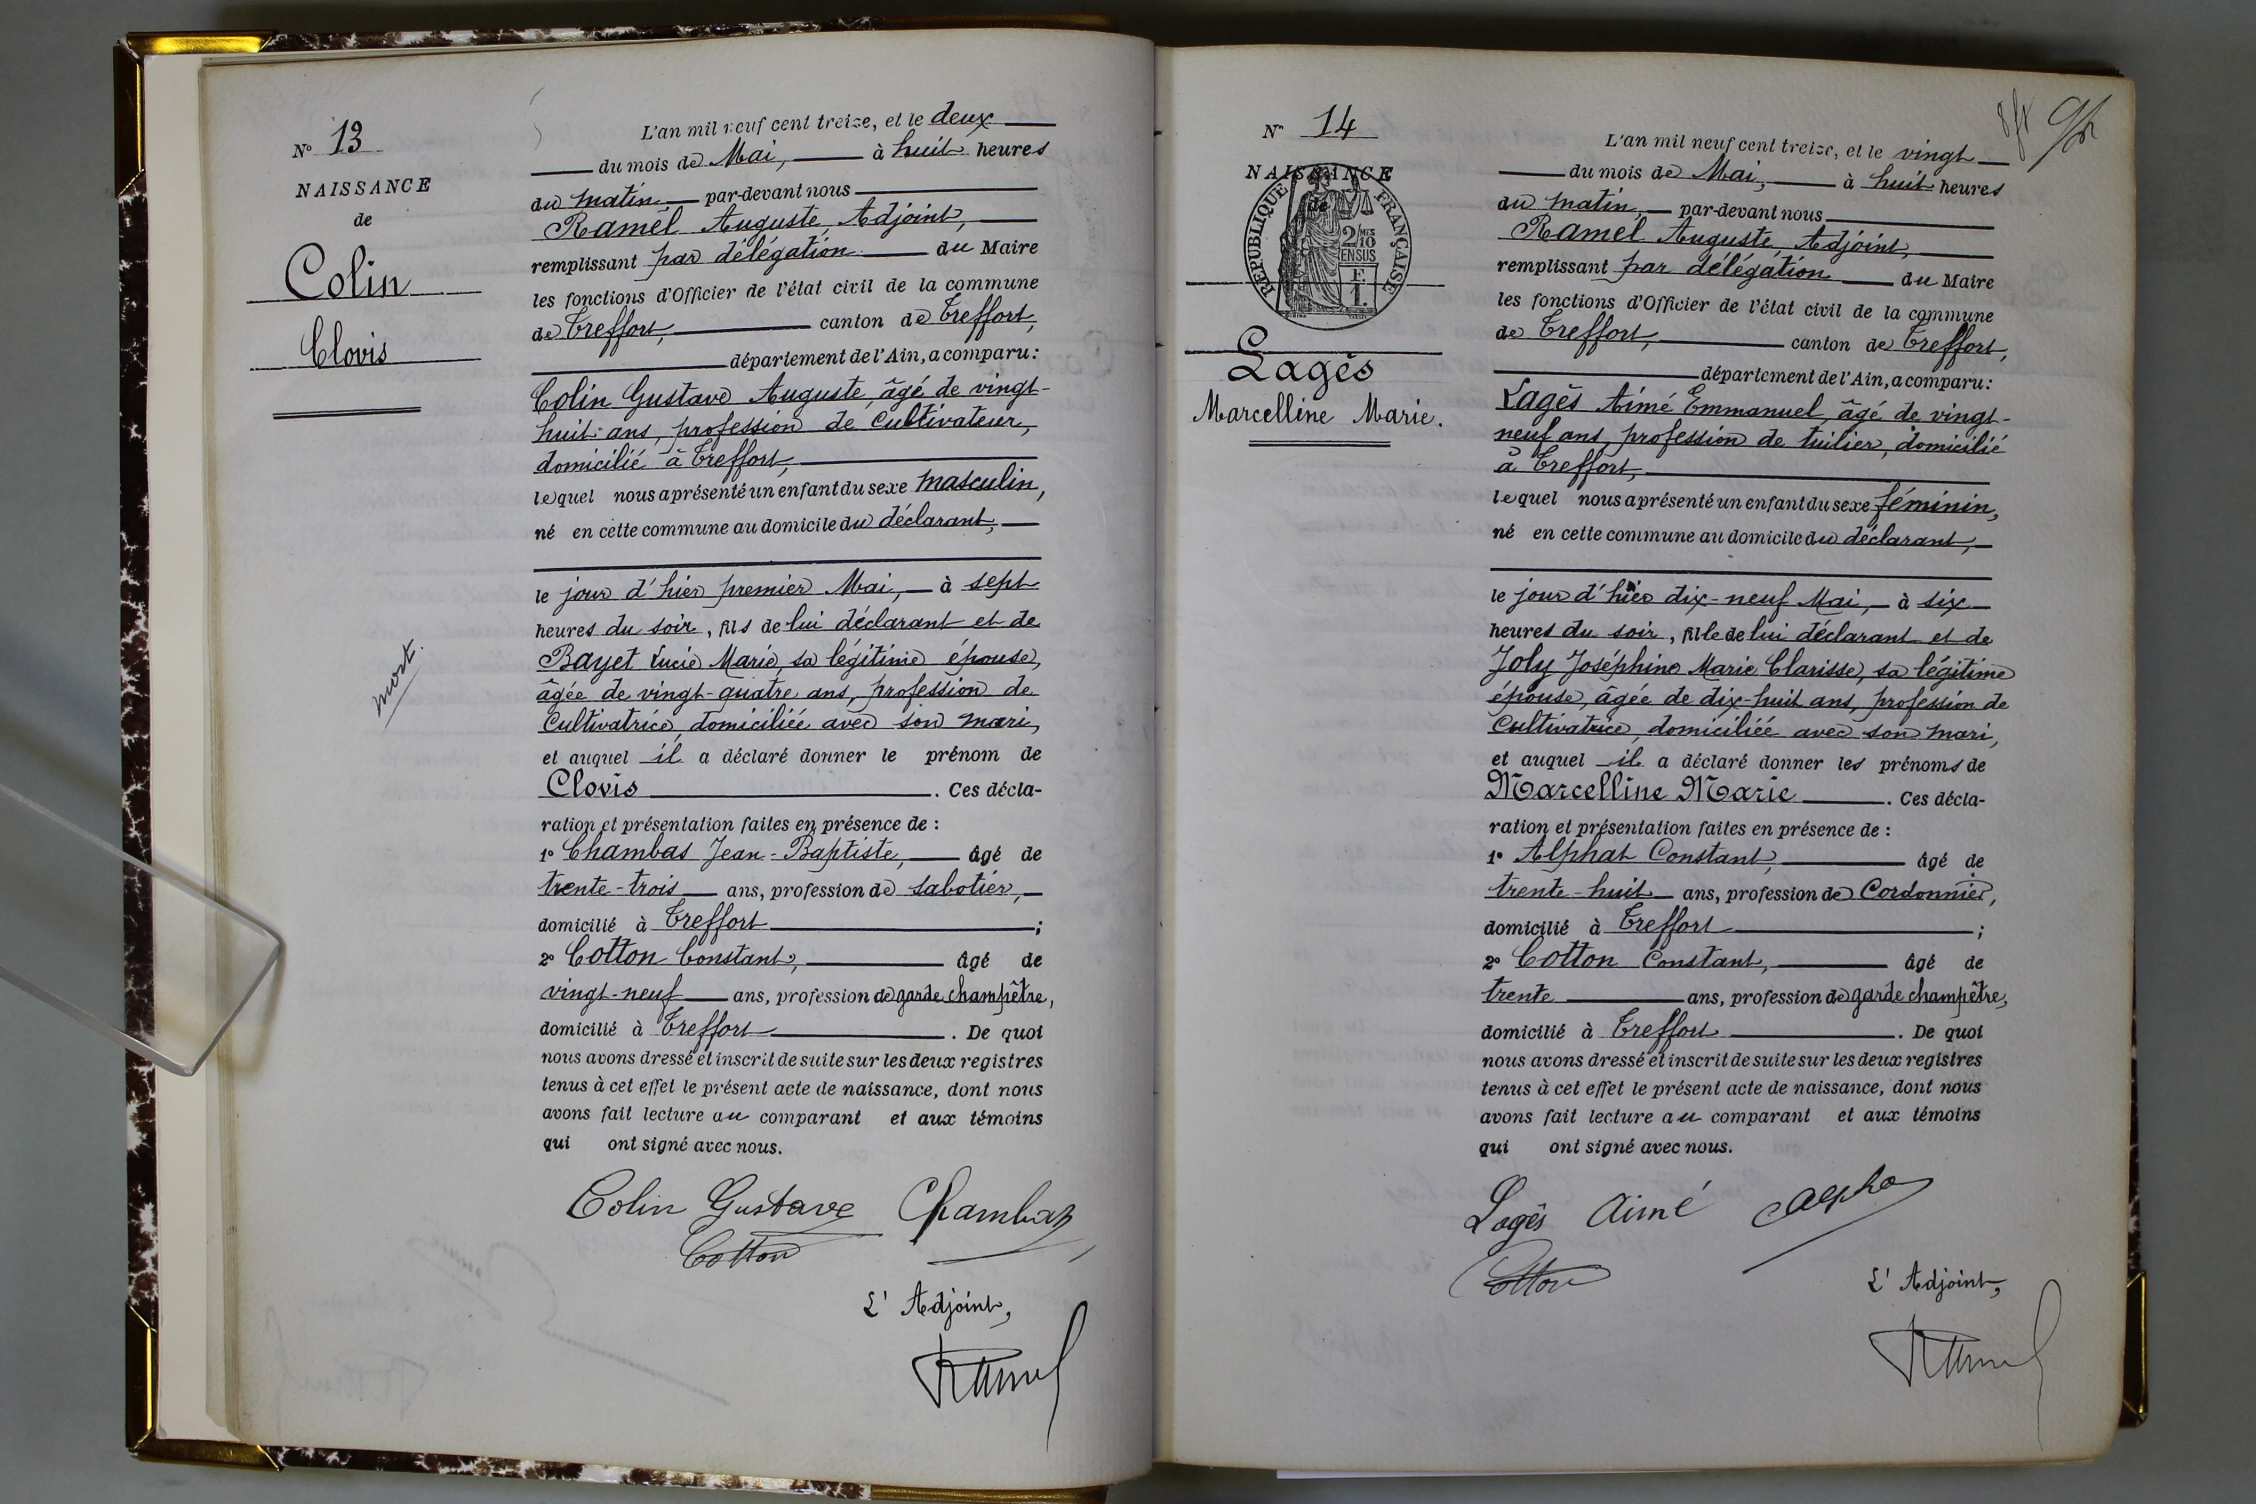 N° 13
NAISSANCE
de
Colin
Clovis
mort.
L'an mil neuf cent treize, et le deux
du mois de Mai, à huit heures
du matin par-devant nous
Ramel Auguste, Adjoint,
remplissant par délégation du Maire
les fonctions d'Officier de l'état civil de la commune
de Treffort, canton de Treffort,
département de l'Ain, a comparu:
Colin Gustave Auguste, âgé de vingt-
huit ans, profession de Cultivateur,
domicilié à Treffort,
lequel nous a présenté un enfant du sexe masculin,
né en cette commune au domicile du déclarant,
le jour d'hier premier Mai, à sept
heures du soir, fils de lui déclarant et de
Bayet Lucie Marie, sa légitime épouse,
âgée de vingt-quatre ans, profession de
Cultivatrice, domiciliée avec son mari,
et auquel il a déclaré donner le prénom de
Clovis. Ces décla-
ration et présentation faites en présence de :
1° Chambas Jean-Baptiste, âgé de
trente-trois ans, profession de sabotier,
domicilié à Treffort ;
2° Cotton Constant, âgé de
vingt-neuf ans, profession de garde champêtre,
domicilié à Treffort. De quoi
nous avons dressé et inscrit de suite sur les deux registres
tenus à cet effet le présent acte de naissance, dont nous
avons fait lecture au comparant et aux témoins
qui ont signé avec nous.
Colin Gustave Chambaz
Cotton
L'Adjoint,
Ramel
N° 14
NAISSANCE
de
REPUBLIQUE FRANÇAISE
2/10MES
EN SUS
F.
1.
Lagès
Marcelline Marie.
L'an mil neuf cent treize, et le vingt
du mois de Mai, à huit heures
du matin, par-devant nous
Ramel Auguste, Adjoint,
remplissant par délégation du Maire
les fonctions d'Officier de l'état civil de la commune
de Treffort, canton de Treffort,
département de l'Ain, a comparu:
Lagès Aimé Emmanuel, âgé de vingt-
neuf ans, profession de tuilier, domicilié
à Treffort,
lequel nous a présenté un enfant du sexe féminin,
né en cette commune au domicile du déclarant,
le jour d'hier dix-neuf Mai, à six
heures du soir, fille de lui déclarant et de
Joly Joséphine Marie Clarisse, sa légitime
épouse, âgée de dix-huit ans, profession de
Cultivatrice, domiciliée avec son mari,
et auquel il a déclaré donner les prénoms de
Marcelline Marie. Ces décla-
ration et présentation faites en présence de :
1° Alphat Constant, âgé de
trente-huit ans, profession de Cordonnier,
domicilié à Treffort ;
2° Cotton Constant, âgé de
trente ans, profession de garde champêtre,
domicilié à Treffort. De quoi
nous avons dressé et inscrit de suite sur les deux registres
tenus à cet effet le présent acte de naissance, dont nous
avons fait lecture au comparant et aux témoins
qui ont signé avec nous.
Lagès Aimé Alpha
Cotton
L'Adjoint,
Ramel